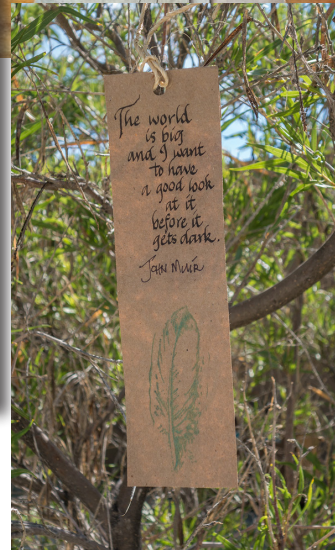 The world
is big
and I want
to have
a good look
at it
before it
gets dark.
John Muir